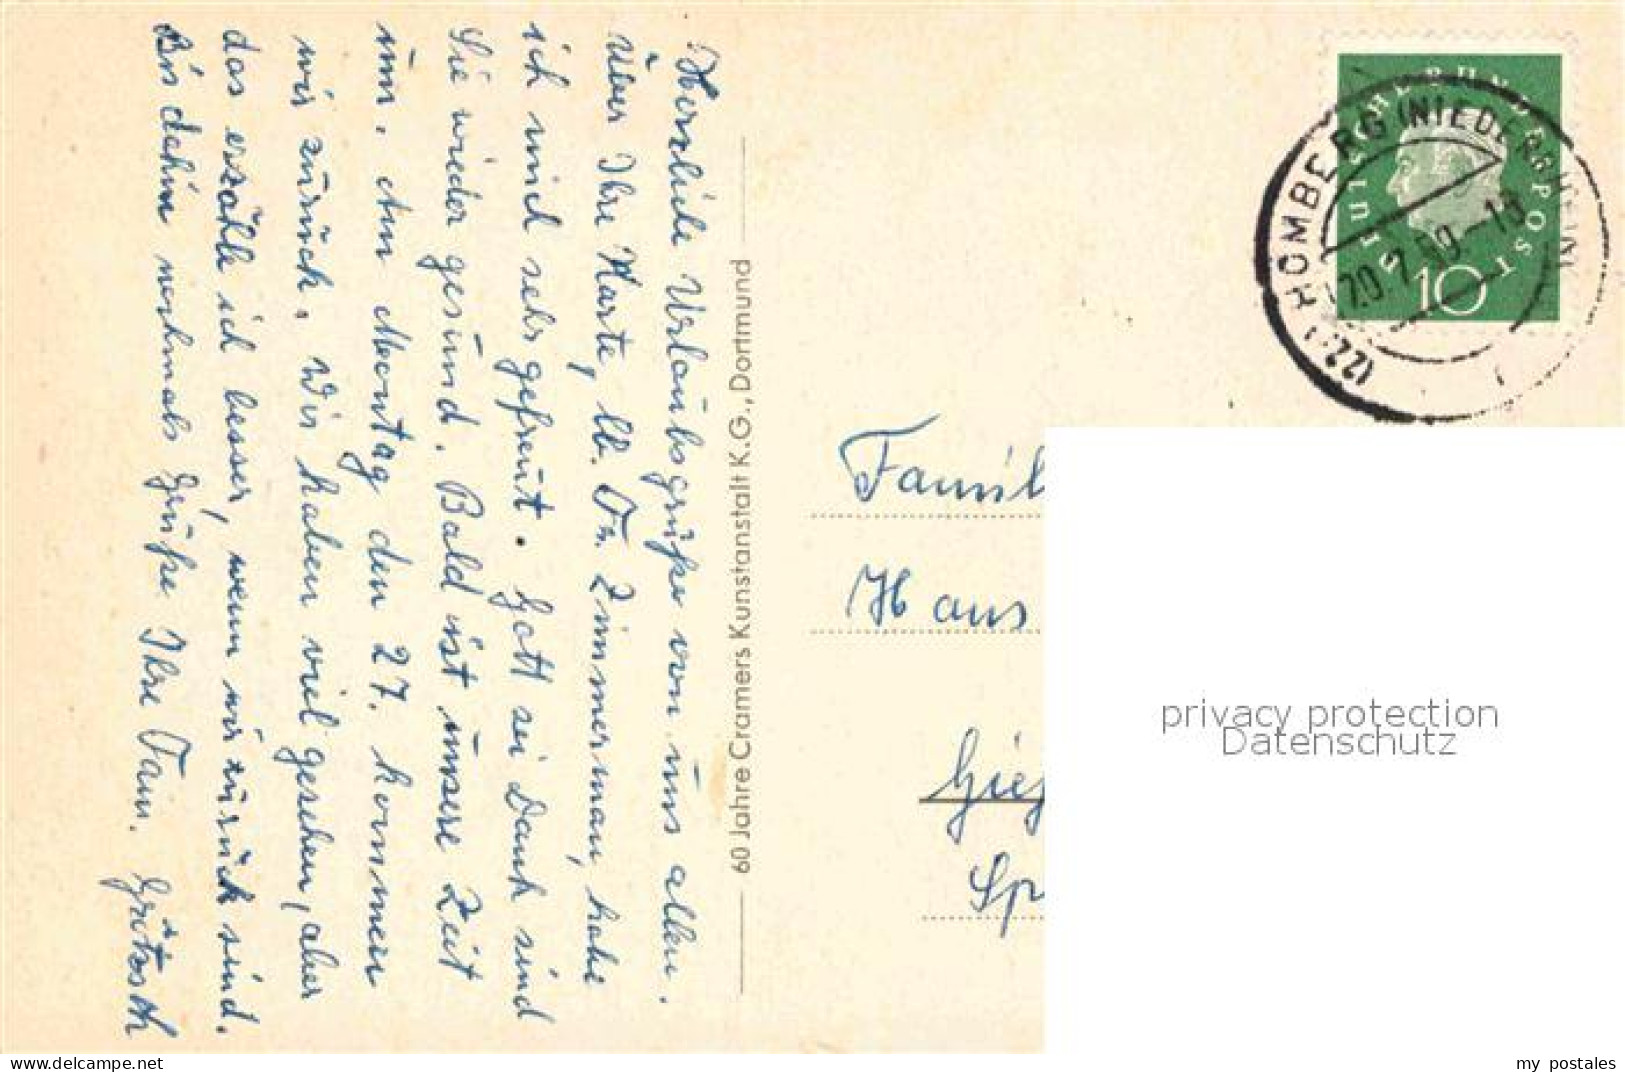 Herzliche Urlaubsgrüße von uns allen.
Über Ihre Karte, lb. Fr. Zimmerman, habe
ich mich sehr gefreut. Gott sei Dank sind
Sie wieder gesund. Bald ist unsere Zeit
um. Am Montag den 27. kommen
wir zurück. Wir haben viel gesehen, aber
das erzähle ich besser, wenn wir zurück sind.
Bis dahin nochmals Grüße Ihre Fam.
60 Jahre Cramers Kunstanstalt K.G., Dortmund
DEUTSCHE BUNDESPOST
10
HOMBERG (NIEDERRHEIN)
Famil
Haus
Gieß
Sp
privacy protection
Datenschutz
delcampe.net
my_postales